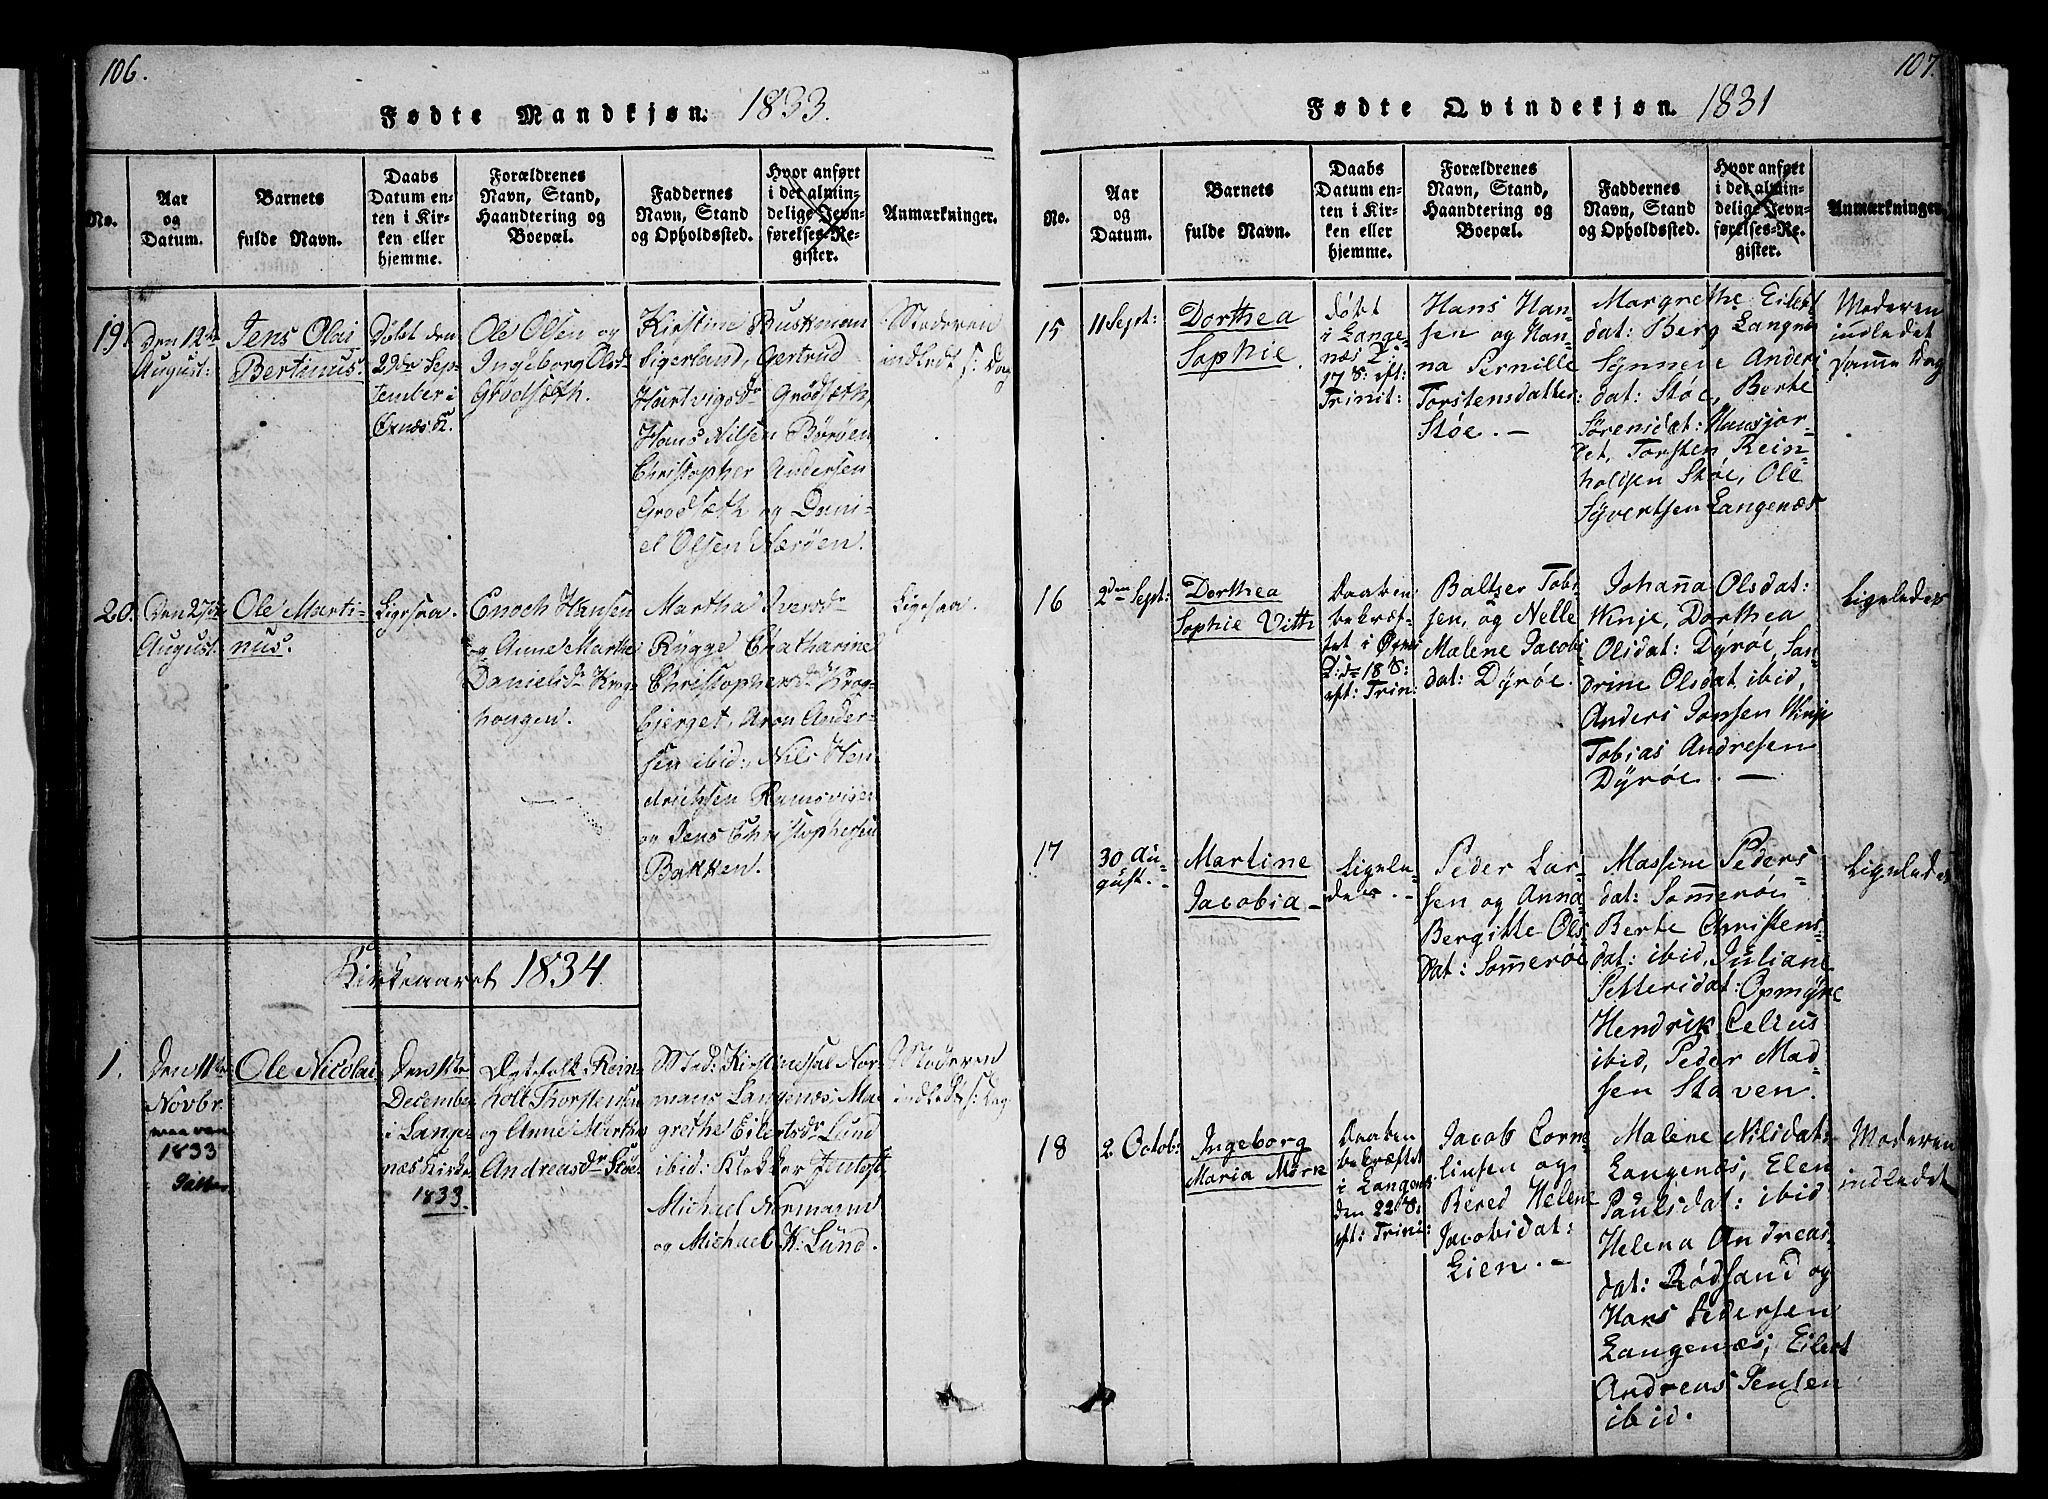 106.
Fødte Mandkjøn: 1833.
No.
Aar
og
Datum.
Barnets
fulde Navn.
Daabs
Datum en-
ten i Kir-
ken eller
hjemme.
Forældrenes
Navn, Stand,
Haandtering og
Boepæl.
Faddernes
Navn, Stand
og Opholdssted.
Hvor anført
i det almin-
delige Jevn-
førelses-Re-
gister.
Anmærkninger.
19.
Den 12te
August:
Jens Olai
Bertinus.
Døbt den
22de Sep-
tember i
Øxnæs K.
Ole Olsen og
Ingeborg Olsd
Grødsøth.
Kirstine Buskman
Tigerland, Gertrud
Hartvigsdr Grødsøth,
Hans Nilsen Børøen
Christopher Andersen
Grødsøth og Dani-
el Olsen Nærøen.
Moderen
indledt s: Dag
20.
August.
Ole Marti-
nus.
Ligesaa.
Enoch Hansen
og Anne Marthe
Danielsdr Krog-
hougen.
Martha Iversdr
Rügge Chatharine
Christophersdr Krog-
bjerget, Aron Ander-
sen ibid: Nils Hen-
drichsen Ramsviger
og Jens Christophersen
Bakken.
Ligesaa.
Kirkeaaret 1834.
1.
Den 11te
Novbr.
1833
Ole Nicolai
Den 1ste
December
i Lange-
næs Kirke
1833.
Ægtefolk Rein-
holt Thorstensen
og Anne Marthe
Andreasdr Støe
Mad: Kirstine Sal Nor-
mans Langenæs, Mar-
grethe Eilertsdr Lund
ibid: Klokker Jentoft
Michael Normann
og Michael K: Lund.
Moderen
indledt s: Dag
107.
Fødte Qvindekjøn. 1831
No.
Aar
og
Datum.
Barnets
fulde Navn.
Daabs
Datum en-
ten i Kir-
ken eller
hjemme.
Forældrenes
Navn, Stand,
Haandtering og
Boepæl.
Faddernes
Navn, Stand
og Opholdssted.
Hvor anført
i det almin-
delige Jevn-
førelses-Re-
gister.
Anmærkninger.
15
11 Sept:
Dorthea
Sophie.
døbt
i Lange-
næs K:
17 S: eft:
Trinit:
Hans Han-
sen og Han-
na Pernille
Torstensdatter:
Støe. —
Margrethe Eilert
dat: Berg Langnes
Synneve Anders
dat: Støe, Berte
Sørensdat: Hansjor-
det, Torsten Rein-
holtsen Støe, Ole
Syvertsen Langenæs
Moderen
indledet
samme Dag
16
2den Sept:
Dorthea
Sophie Vith
Daaben
bekræf-
tet i Øxn:
Kirke 18 S:
eft: Trin:
Baltser Tobi-
sen, og Nelle
Malene Jacobs
dat: Dyrøe.
Johanna Olsdat:
Winje, Dorthea
Olsdat: Dyrøe, San-
drine Olsdat ibid,
Anders Jonsen Winje
Tobias Andresen
Dyrøe. —
Ligeledes
17
30 Au-
gust. -
Martine
Jacobia -
Ligele-
des. -
Peder Lar-
sen og Anna
Bergitte Ols-
dat: Somerøe
Massine Peders-
dat: Somerøe
Berte Christens-
dat: ibid, Juliane
Pettersdat: Opmyre
Hendrik Celius
ibid, Peder Mad-
sen Staven.
Ligeledes
18
2 Octob:
Ingeborg
Maria Mörk
Daaben
bekræftet
i Langenæs
den 22de S:
eft: Trini:
Jacob Corne-
liusen og
Bered Helene
Jacobsdat:
Lien. -
Malene Nilsdat:
Langenæs, Elen
Paulsdat: ibid
Helena Andreas-
dat: Rødsand og
Hans Pedersen
Langenæs, Eilert
Andreas Jensen
ibid.
Moderen
indledet